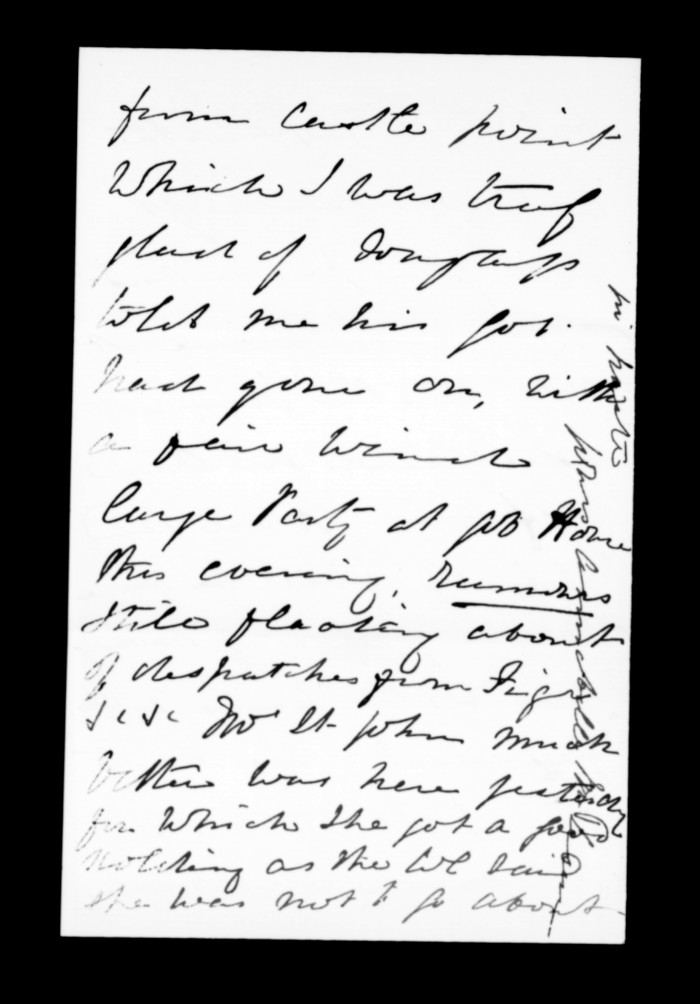 from Castle point
Which I was truly
glad of Douglass
told me his gov.
had gone on, with
a fair Wind
large Party at Govt House
this evening, rumours
still floating about
of despatches from Figi
&c &c Mrs St John much
better was here yesterday
for Which She got a good
scolding as the Col said
she was not to go about
in haste
yours